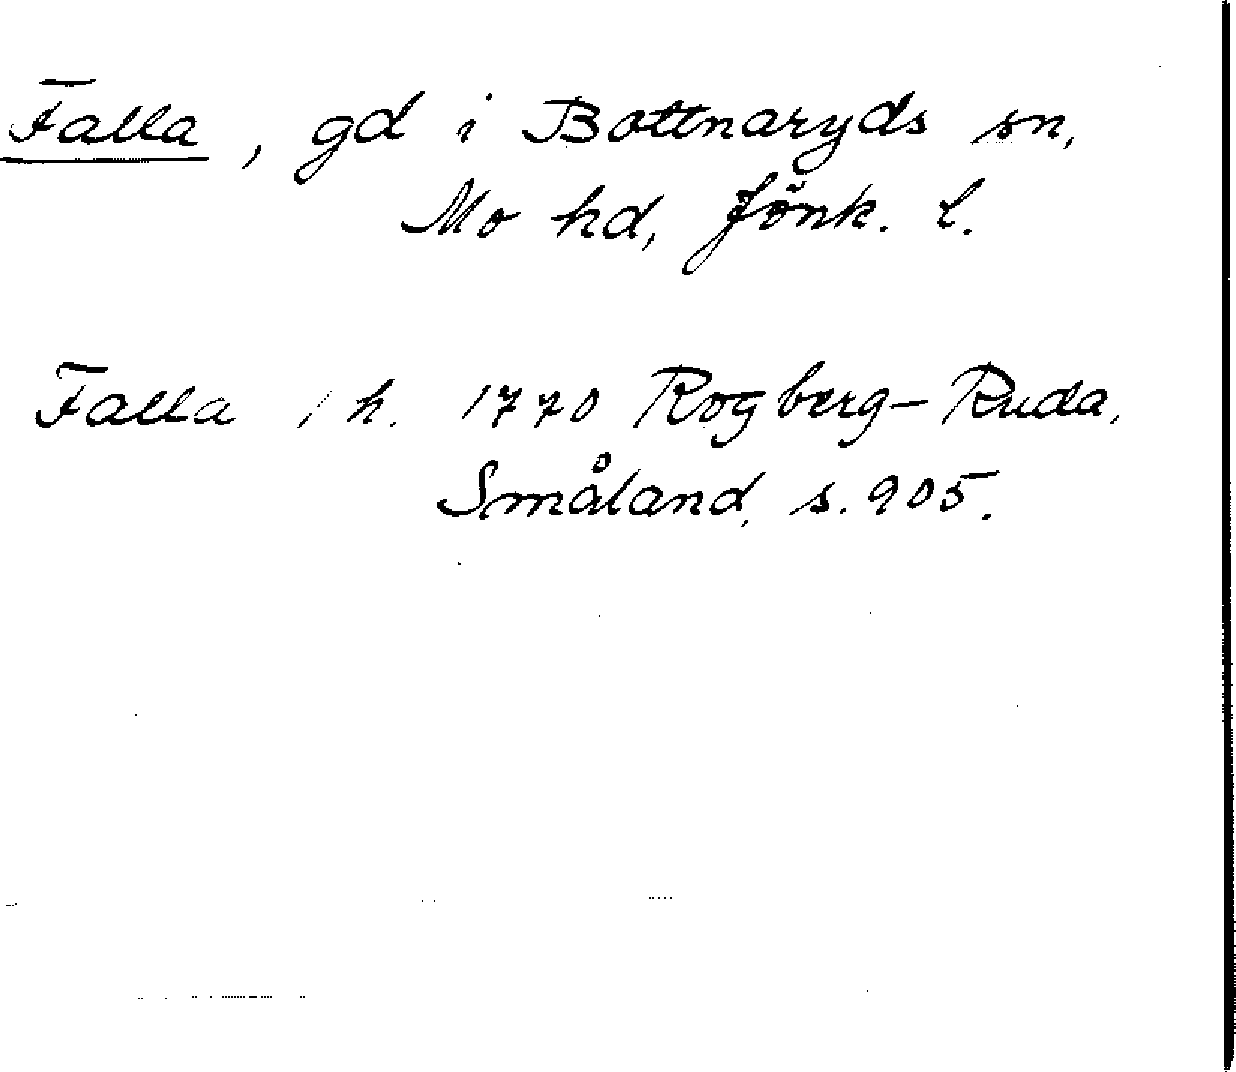 Falla, gd i Bottnaryds sn,
Mo hd, Jönk. l.
Falla 1 h. 1770 Rogberg-Ruda,
Småland, s. 905.